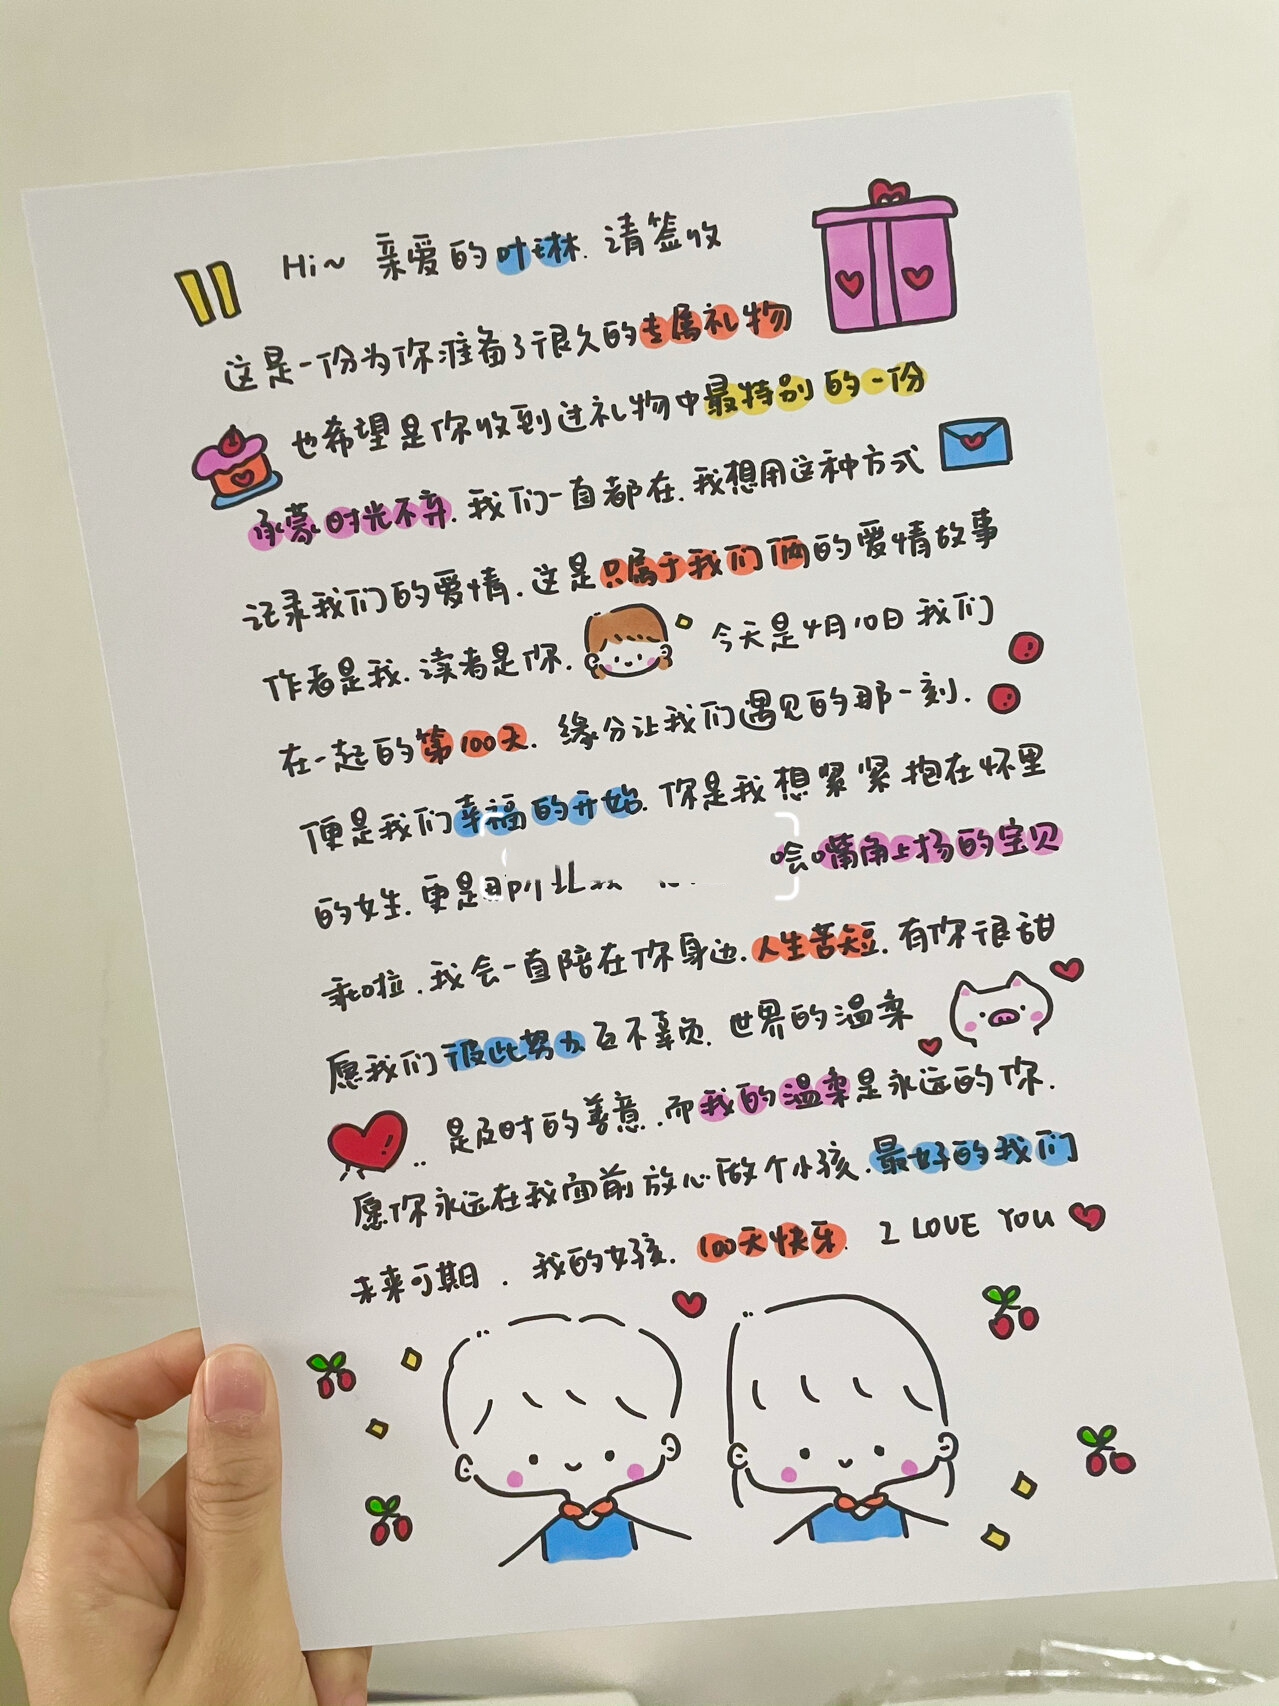 Hi~ 亲爱的叶琳.请签收
这是一份为你准备了很久的专属礼物
也希望是你收到过礼物中最特别的一份
承蒙时光不弃.我们一直都在.我想用这种方式
记录我们的爱情.这是只属于我们俩的爱情故事
作者是我.读者是你.今天是4月10日我们
在一起的第100天.缘分让我们遇见的那一刻.
便是我们幸福的开始.你是我想紧紧抱在怀里
的女生.更是 嘴角上扬的宝贝
乖啦.我会一直陪在你身边.人生苦短.有你很甜
愿我们彼此努力互不辜负.世界的温柔
是及时的善意.而我的温柔是永远的你.
愿你永远在我面前放心做个小孩.最好的我们
未来可期.我的女孩.100天快乐.I LOVE YOU